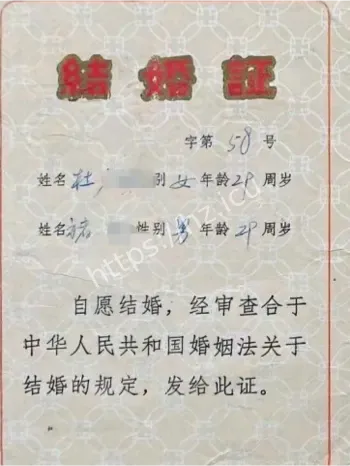 結婚証
字第 58 号
姓名杜 别女年龄29周岁
姓名褚 性别男年龄29周岁
自愿结婚，经审查合于
中华人民共和国婚姻法关于
结婚的规定，发给此证。